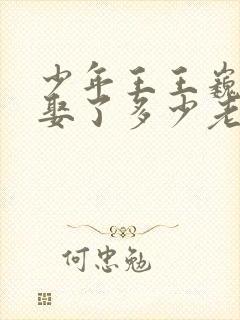 少年王王巍
娶了多少老
何忠勉